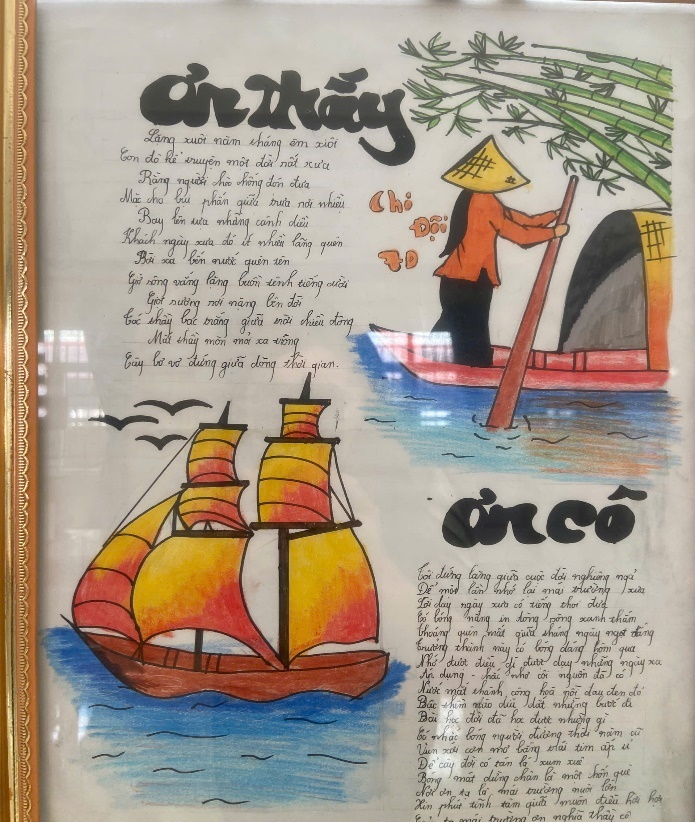 ơn thầy
Lẳng xuôi năm tháng êm trôi
Con đò kể chuyện một đời rất xưa
Rằng người chèo chống đón đưa
Mặc cho bụi phấn giữa trưa rơi nhiều
Bay lên tựa những cánh diều
Khách ngày xưa đó ít nhiều lãng quên
Rời xa bến nước quên tên
Giờ sông vắng lặng buồn tênh tiếng cười
Giọt sương rơi nặng bên đời
Tóc thầy bạc trắng giữa trời chiều đông
Mắt thầy mòn mỏi xa trông
Cây bơ vơ đứng giữa dòng thời gian.
Chi
Đội
7D
ơn cô
Tôi đứng lặng giữa cuộc đời nghiêng ngả
Để một lần nhớ lại mái trường xưa
Lời dạy ngày xưa có tiếng thoi đưa
Có bóng nắng in dòng sông xanh thẳm
thoáng quên mất giữa tháng ngày ngọt đắng
trưởng thành này có bóng dáng hôm qua
Nhớ được điều gì được dạy những ngày xa
Áp dụng - hãi nhớ cội nguồn đã có
Nước mắt thành công hoà nỗi đau đen đỏ
Bậc thềm nào dìu dắt những bước đi
Bài học đời đã học được những gì
Có nhắc bóng người đương thời năm cũ
Vun xới ước mơ bằng trái tim ấp ủ
Để cây đời có tán lá xum xuê
Bóng mát dừng chân là một chốn quê
Nơi ơn tạ là mái trường nuôi lớn
Xin phút tĩnh tâm giữa muôn điều hời hợt
mái trường ơn nghĩa thầy cô